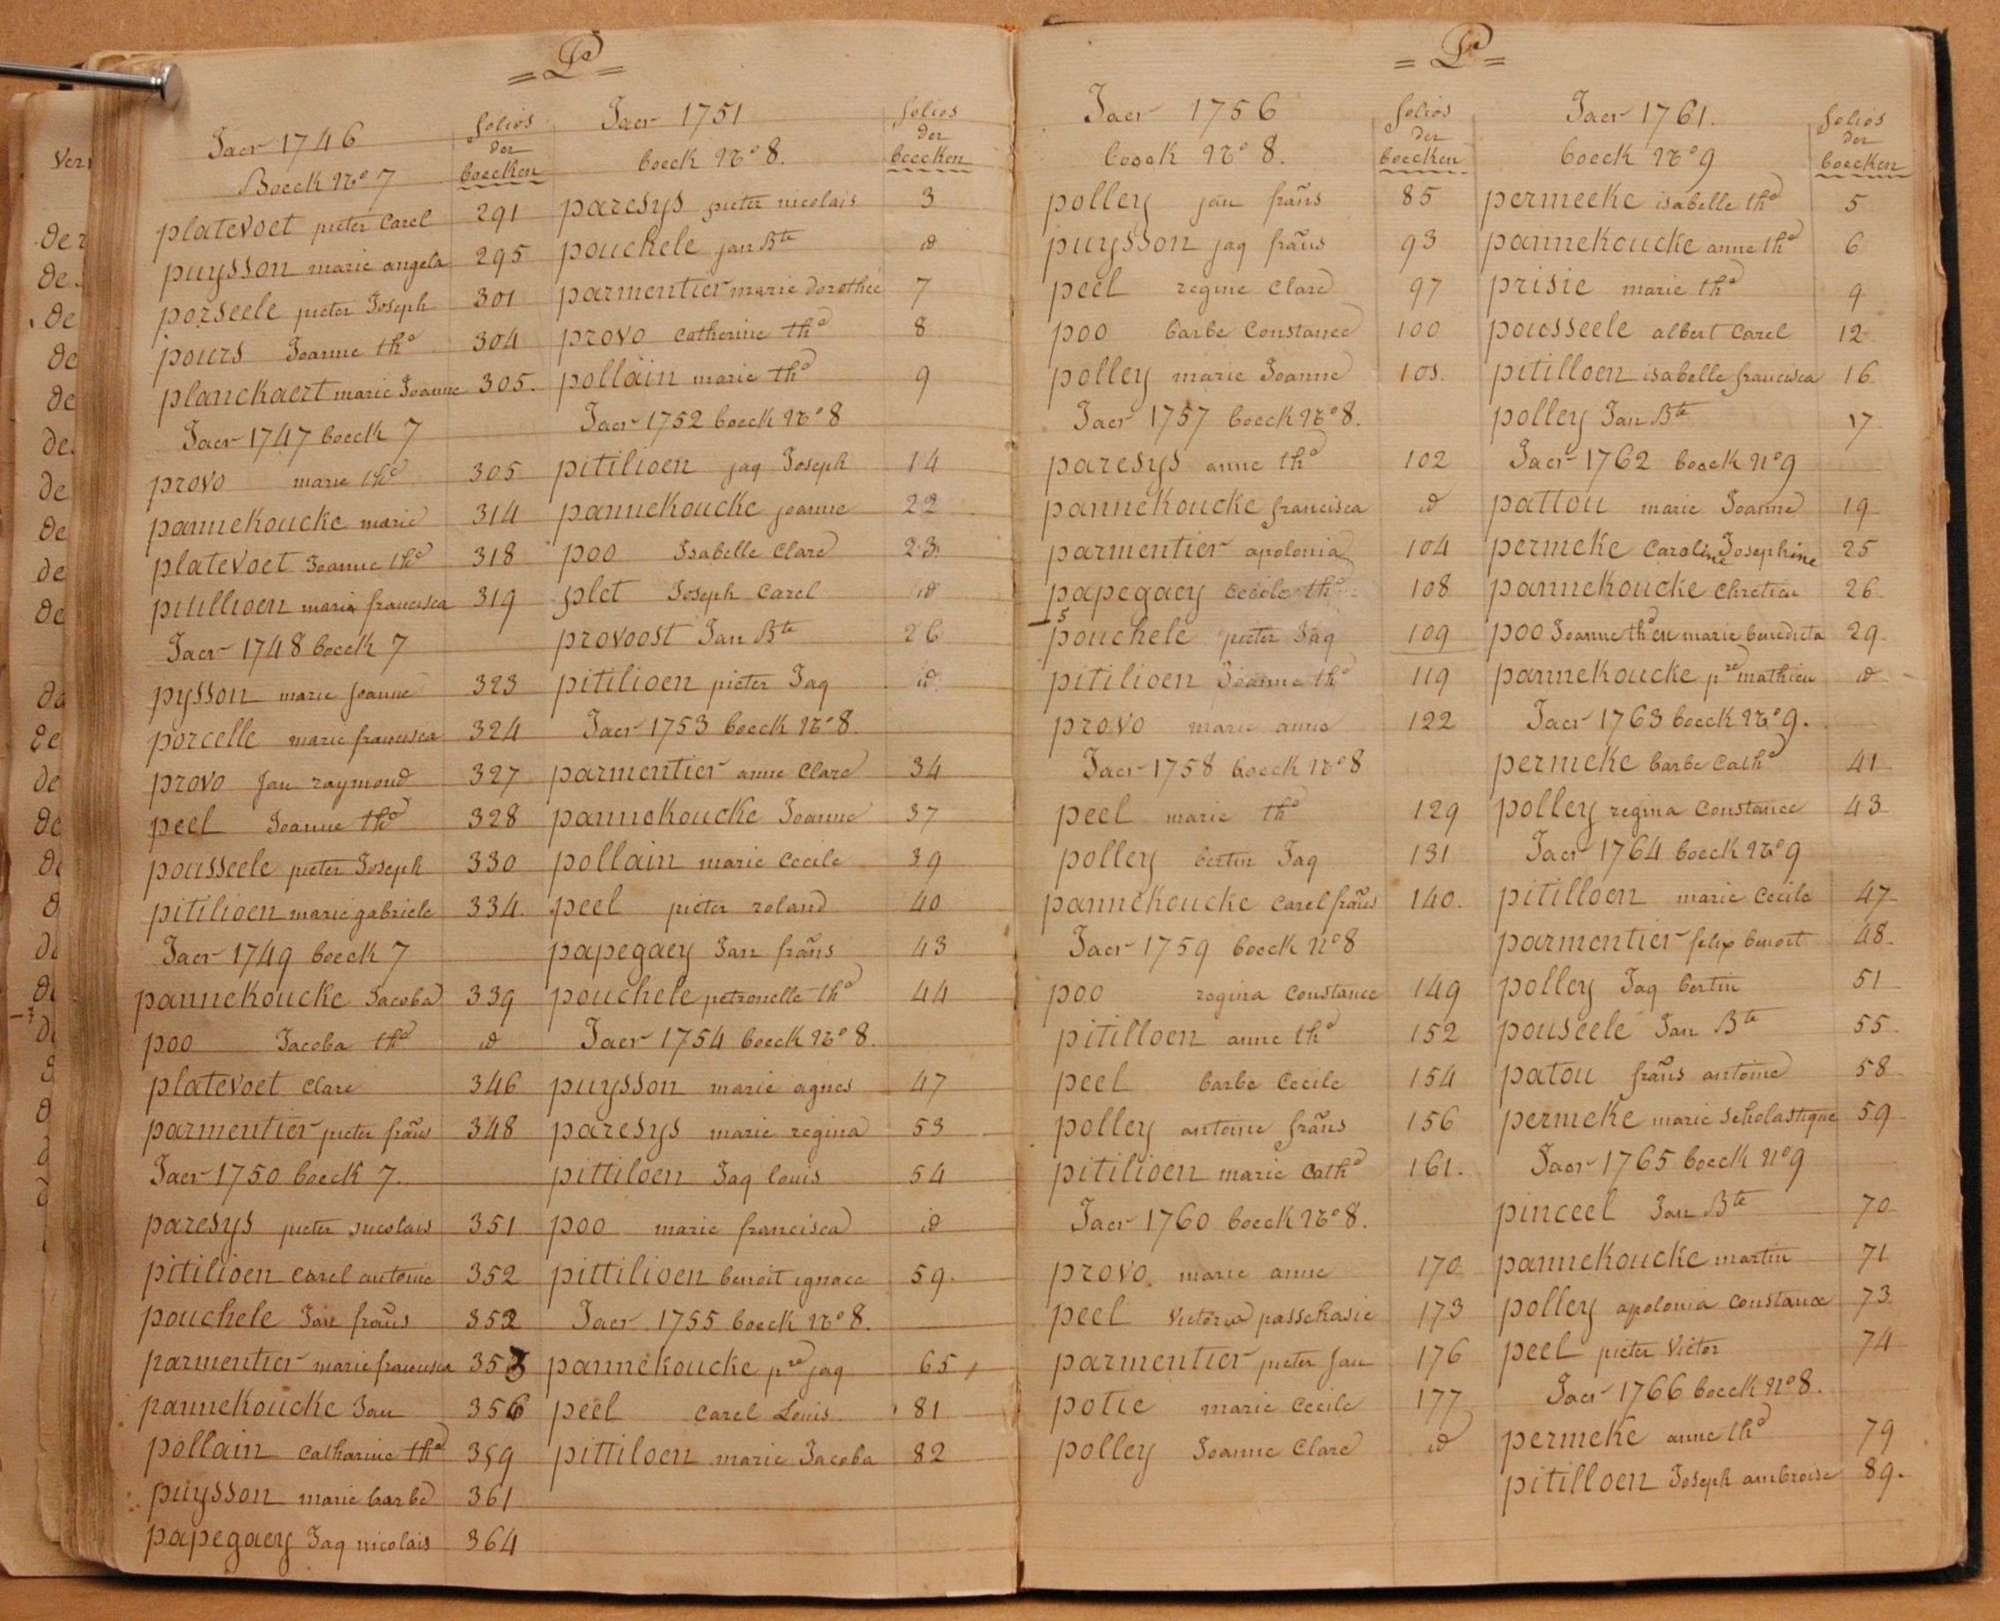 = P =
Jaer 1746
folios
der
boecken
Boeck No 7
platevoet pieter Carel 291
puysson marie angela 295
porseele pieter Joseph 301
pours Joanne the 304
planckaert marie Joanne 305.
Jaer 1747 boeck 7
provo marie the 305
pannekoucke marie 314
platevoet Joanne the 318
pitillioen marie francisca 319
Jaer 1748 boeck 7
pysson marie Joanne 323
porcelle marie francisca 324
provo Jan raymond 327
peel Joanne the 328
pousseele pieter Joseph 330
pitilioen marie gabriele 334.
Jaer 1749 boeck 7
pannekoucke Jacoba 339
poo Jacoba the id
platevoet Clare 346
parmentier pieter frans 348
Jaer 1750 boeck 7.
paresys pieter nicolais 351
pitilioen carel antoine 352
pouchele Jan frans 352
parmentier marie francisca 353
pannekoucke Jan 356
pollain catharine the 359
puysson marie barbe 361
papegaey Jaq nicolais 364
Jaer 1751
folios
der
boecken
boeck No 8.
paresys pieter nicolais 3
pouchele jan Bte id
parmentier marie dorothée 7
provo Catherine the 8
pollain marie the 9
Jaer 1752 boeck No 8
pitilioen jaq Joseph 14
pannekoucke joanne 22
poo Isabelle Clare 23.
plet Joseph Carel id
provoost Jan Bte 26
pitilioen pieter Jaq id.
Jaer 1753 boeck No 8.
parmentier anne Clare 34
pannekoucke Joanne 37
pollain marie Cecile 39
peel pieter roland 40
papegaey Jan frans 43
pouchele petronelle the 44
Jaer 1754 boeck No 8.
puysson marie agnes 47
paresys marie regina 53
pittiloen Jaq louis 54
poo marie francisca id
pittilioen benoit ignace 59.
Jaer 1755 boeck No 8.
pannekoucke pre jaq 65
peel Carel Louis 81
pittiloen marie Jacoba 82
= P =
Jaer 1756
folios
der
boecken
boeck No 8.
polley jan frans 85
puysson jaq frans 93
peel regine Clare 97
poo barbe Constance 100
polley marie Joanne 101.
Jaer 1757 boeck No 8.
paresys anne the 102
pannekoucke francisca id
parmentier apolonia 104
papegaey Cecile the 108
pouchele pieter Jaq 109
pitilioen Joanne the 119
provo marie anne 122
Jaer 1758 boeck No 8
peel marie the 129
polley bertin Jaq 131
pannekoucke Carel frans 140.
Jaer 1759 boeck No 8
poo regina Constance 149
pitilloen anne the 152
peel barbe Cecile 154
polley antoine frans 156
pitilioen marie Cathe 161.
Jaer 1760 boeck No 8.
provo marie anne 170
peel Victoria passchasie 173
parmentier pieter Jan 176
potie marie Cecile 177
polley Joanne Clare id
Jaer 1761.
folios
der
boecken
boeck No 9
permeeke isabelle the 5
pannekoucke anne the 6
prisie marie the 9
pousseele albert Carel 12
pitilloen isabelle francisca 16
polley Jan Bte 17
Jaer 1762 boeck No 9
pattou marie Joanne 19
permeke Caroline Josephine 25
pannekoucke Chretien 26.
poo Joanne the en marie benedicta 29.
pannekoucke pre mathieu id
Jaer 1763 boeck No 9.
permeke barbe Cathe 41
polley regina Constance 43
Jaer 1764 boeck No 9
pitilloen marie Cecile 47
parmentier felix benoit 48.
polley Jaq bertin 51
pouseele Jan Bte 55.
patou frans antoine 58
permeke marie Scholastique 59
Jaer 1765 boeck No 9
pinceel Jan Bte 70
pannekoucke martin 71
polley apolonia Constance 73
peel pieter Victor 74
Jaer 1766 boeck No 8.
permeke anne the 79
pitilloen Joseph ambroise 89.